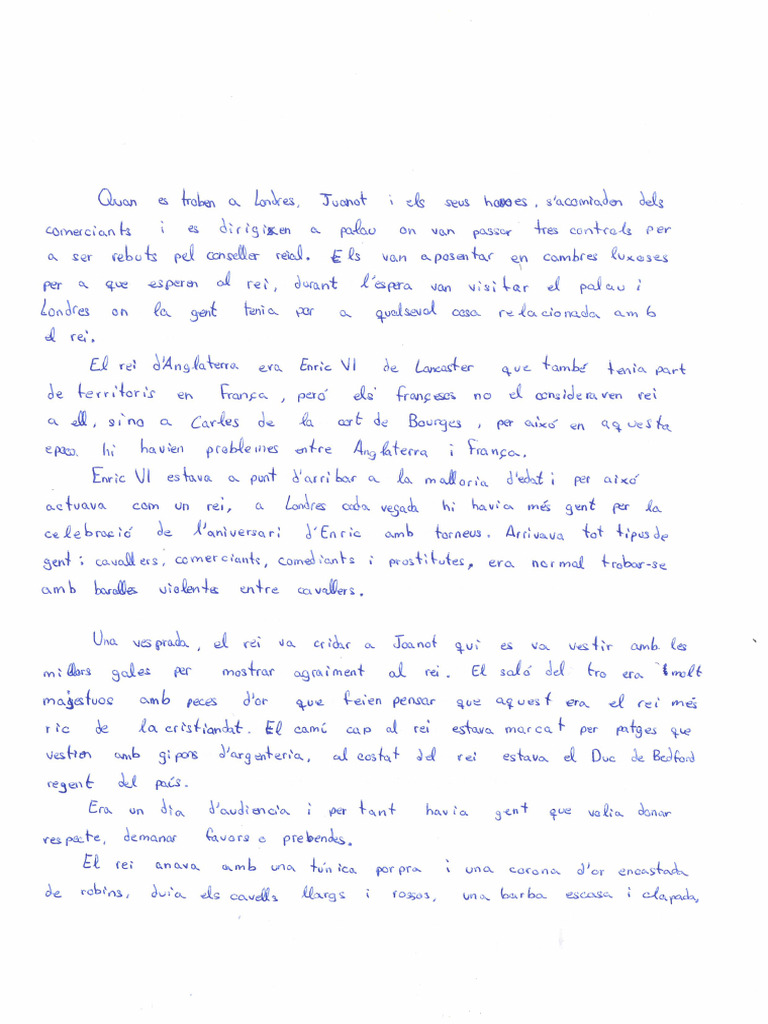 Quan es troben a Londres, Juanot i els seus homes, s'acomiaden dels
comerciants i es dirigixen a palau on van passar tres controls per
a ser rebuts pel conseller reial. Els van aposentar en cambres luxoses
per a que esperen al rei, durant l'espera van visitar el palau i
Londres on la gent tenia por a qualseval cosa relacionada amb
el rei.
El rei d'Anglaterra era Enric VI de Lancaster que també tenia part
de territoris en França, però els françesos no el consideraven rei
a ell, sino a Carles de la cort de Bourges, per aixó en aquesta
epoca hi havien problemes entre Anglaterra i França.
Enric VI estava a punt d'arribar a la malloria d'edat i per aixó
actuava com un rei, a Londres cada vegada hi havia més gent per la
celebració de l'aniversari d'Enric amb torneus. Arrivava tot tipus de
gent i cavallers, comerciants, comediants i prostitutes, era normal trobar-se
amb baralles violentes entre cavallers.
Una vesprada, el rei va cridar a Joanot qui es va vestir amb les
millors gales per mostrar agraiment al rei. El saló del tro era molt
majestuos amb peces d'or que feien pensar que aquest era el rei més
ric de la cristiandat. El camí cap al rei estava marcat per patges que
vestien amb gipons d'argenteria, al costat del rei estava el Duc de Bedford
regent del país.
Era un dia d'audiencia i per tant havia gent que volia donar
respecte, demanar favors o prebendes.
El rei anava amb una túnica porpra i una corona d'or encastada
de robins, duia els cavells llargs i rossos, una barba escasa i clapada,